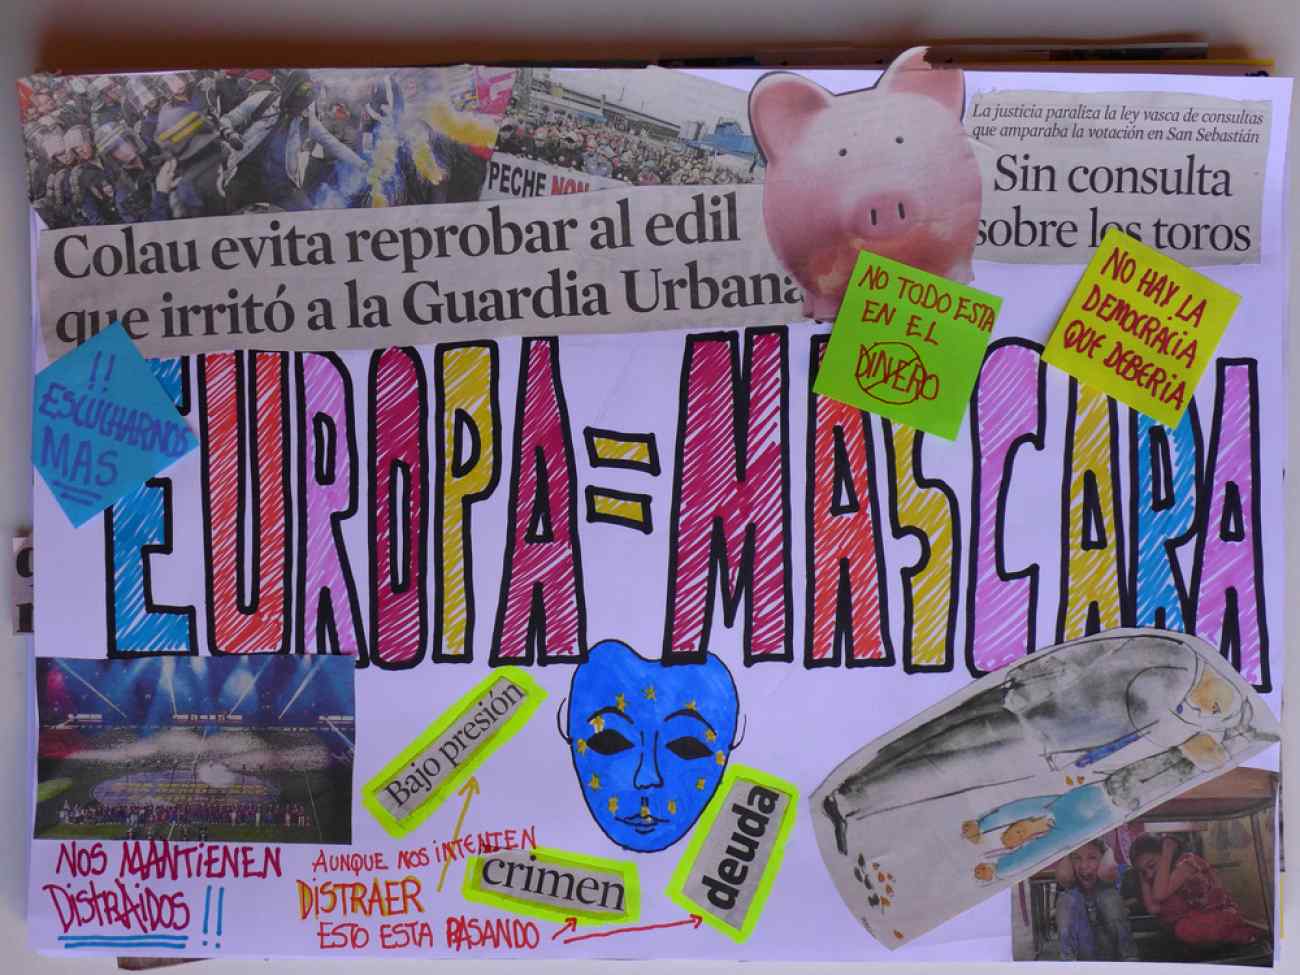 La justicia paraliza la ley vasca de consultas
que amparaba la votación en San Sebastián
Sin consulta
sobre los toros
PECHE NON
Colau evita reprobar al edil
que irritó a la Guardia Urbana
NO TODO ESTA
EN EL
DINERO
NO HAY LA
DEMOCRACIA
QUE DEBERIA
!!
ESCUCHARNOS
MAS
EUROPA=MASCARA
Bajo presión
crimen
deuda
NOS MANTIENEN
DISTRAIDOS !!
AUNQUE NOS INTENTEN
DISTRAER
ESTO ESTA PASANDO